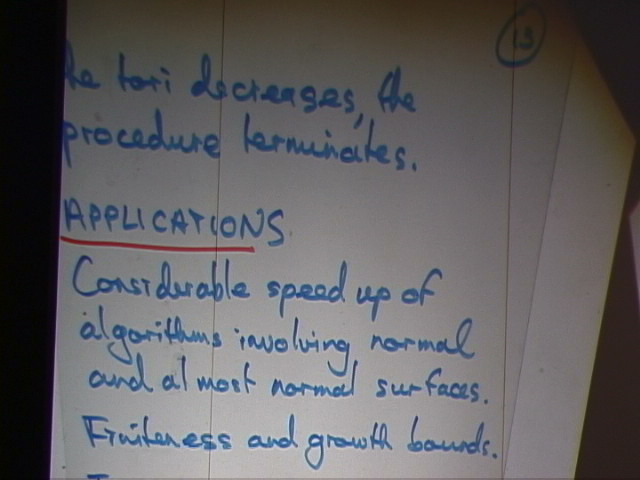 13
he tori decreases, the
procedure terminates.
APPLICATIONS.
Considerable speed up of
algorithms involving normal
and almost normal surfaces.
Finiteness and growth bounds.